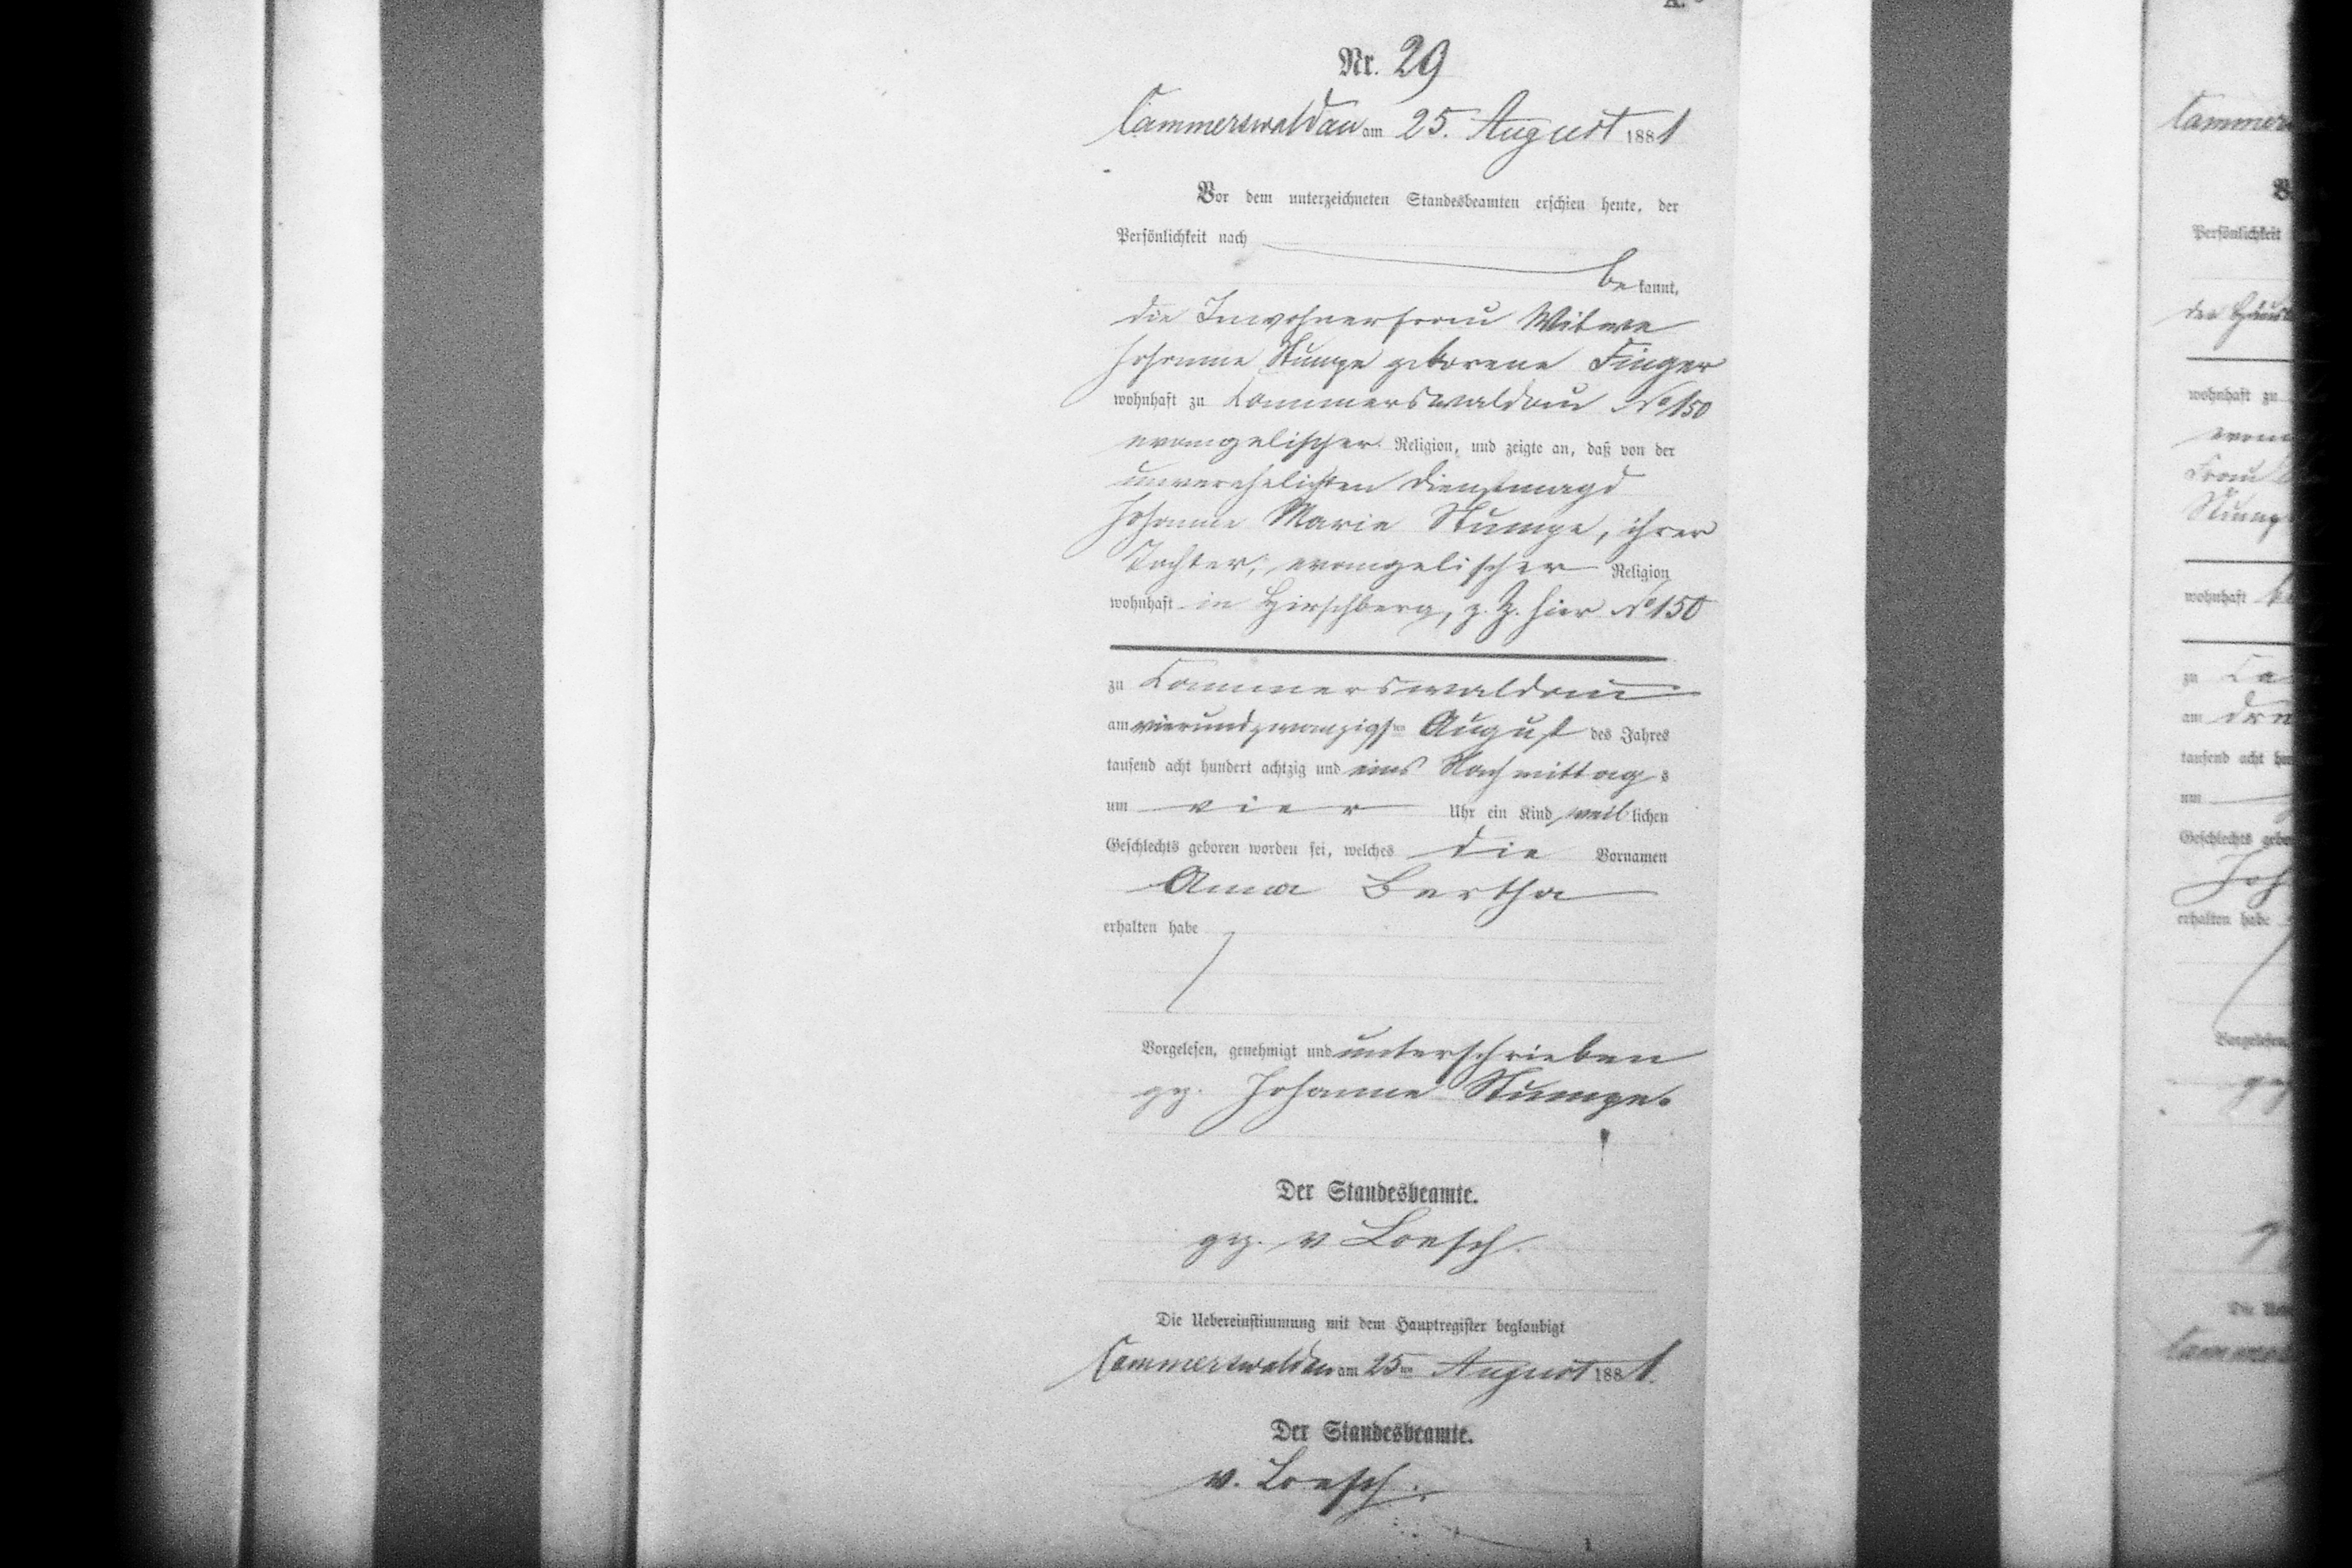 Nr. 29
Cammerswaldau am 25. August 1881
Vor dem unterzeichneten Standesbeamten erschien heute, der
Persönlichkeit nach
be kannt,
die Inwohnerfrau Witwe
Johanne Stumpe geborene Finger
wohnhaft zu Kammerswaldau No 150
evangelischer Religion, und zeigte an, daß von der
unverehelichten Dienstmagd
Johanne Marie Stumpe, ihrer
Tochter, evangelischer Religion
wohnhaft in Hirschberg, z. Z. hier No 150
zu Kammerswaldau
am vierundzwanzigsten August des Jahres
tausend acht hundert achtzig und eins Nachmittag s
um vier Uhr ein Kind weib lichen
Geschlechts geboren worden sei, welches die Vornamen
Anna Bertha
erhalten habe
Vorgelesen, genehmigt und unterschrieben
gez. Johanne Stumpe.
Der Standesbeamte.
gez. v Loesch.
Die Uebereinstimmung mit dem Hauptregister beglaubigt
Cammerswaldau am 25ten August 1881.
Der Standesbeamte.
v. Loesch.
Persönlichkeit
wohnhaft zu
Frau
wohnhaft
zu
am
tausend acht
um
Geschlechts
erhalten habe
Vorgelesen,
Die